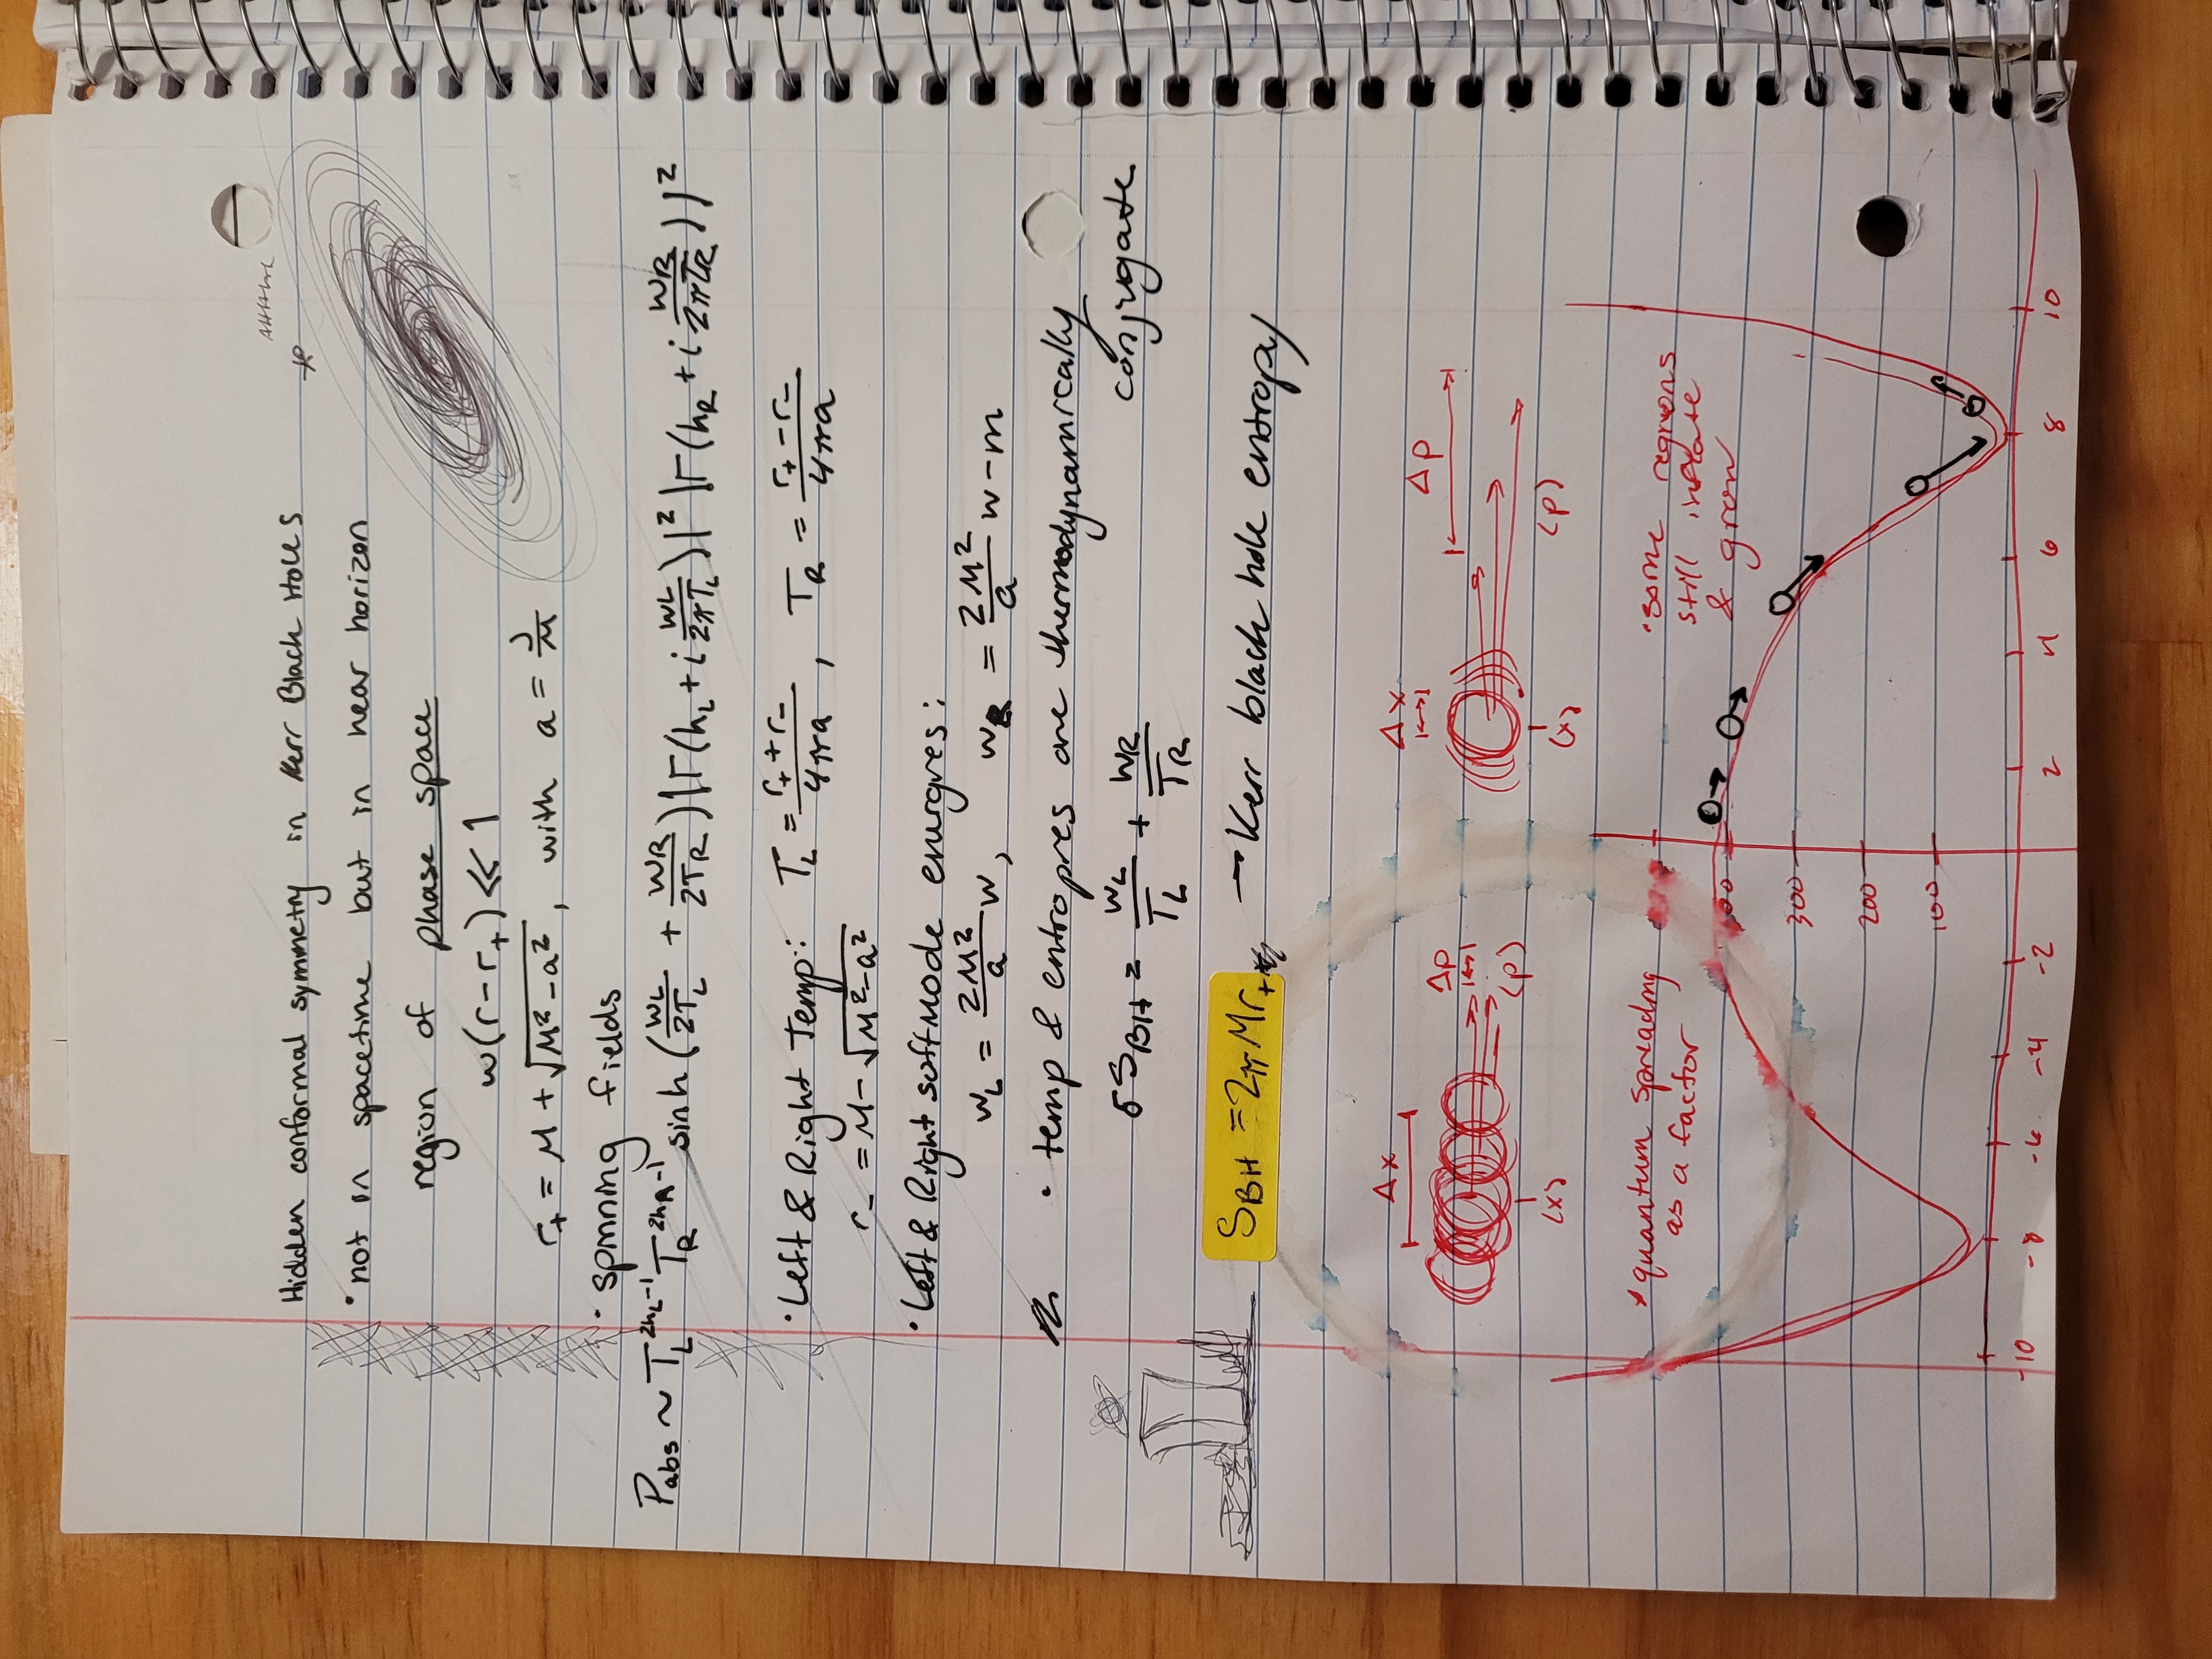 AHHHhh
Hidden conformal symmetry in Kerr Black Holes *
• not in spacetime but in near horizon
region of phase space
w(r-r₊) << 1
r₊ = M + √(M²-a²) , with a = J/M
• spinning fields
Pabs ~ T_L^(2h_L-1) T_R^(2h_R-1) sinh(w_L/2T_L + w_R/2T_R) |Γ(h_L + i w_L/2πT_L)|² |Γ(h_R + i w_R/2πT_R)|²
• Left & Right Temp: T_L = (r₊ + r₋)/4πa , T_R = (r₊ - r₋)/4πa
r₋ = M - √(M²-a²)
• Left & Right soft mode energies:
w_L = 2M²/a w , w_R = 2M²/a w - m
• temp & entropies are thermodynamically
conjugate
δS_BH = w_L/T_L + w_R/T_R
S_BH = 2π Mr₊ → Kerr black hole entropy
Δx Δp Δx Δp
⟨x⟩ ⟨p⟩ ⟨x⟩ ⟨p⟩
* quantum spreading
as a factor
• some regions
still inflate
& grow
300
200
100
-10 -8 -6 -4 -2 2 4 6 8 10